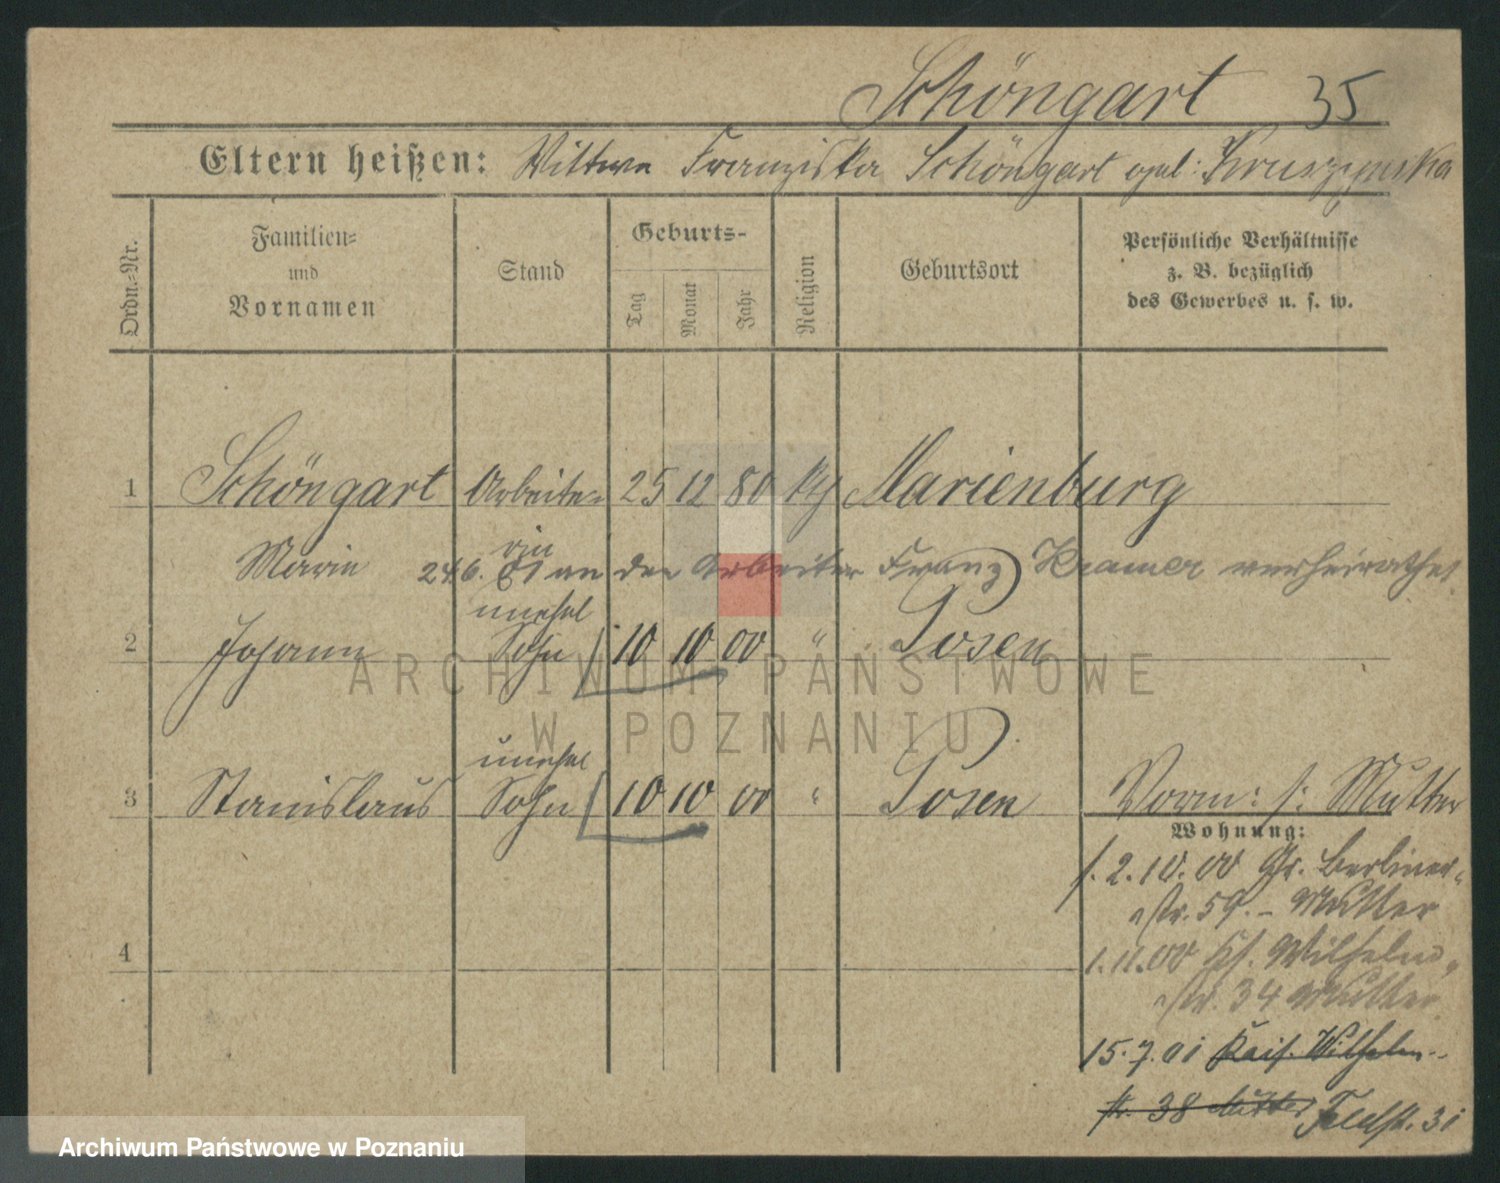 Schöngart 35
Eltern heißen: Wittwe Franziska Schöngart geb: Kruszynska
Ordn.=Nr.
Familien= und Vornamen
Stand
Geburts-
Tag
Monat
Jahr
Religion
Geburtsort
Persönliche Verhältnisse
z. B. bezüglich
des Gewerbes u. s. w.
1 Schöngart Arbeite= 25 12 80 kth Marienburg
rin
Marie 24.6. 01 an den Arbeiter Franz Kramer verheirathet
unehel
2 Johann Sohn 10 10 00 " Posen
ARCHIWUM PAŃSTWOWE
W POZNANIU
unehel
3 Stanislaus Sohn 10 10 00 " Posen Vorm: s: Mutter
Wohnung:
2.10.00 Gr. Berliner-
str. 59. - Mutter
4
1.11.00 Ks. Wilhelm-
str. 34 Mutter
15.7.01 Kais. Wilhelm-
str. 38 Mutter Feldstr. 31
Archiwum Państwowe w Poznaniu